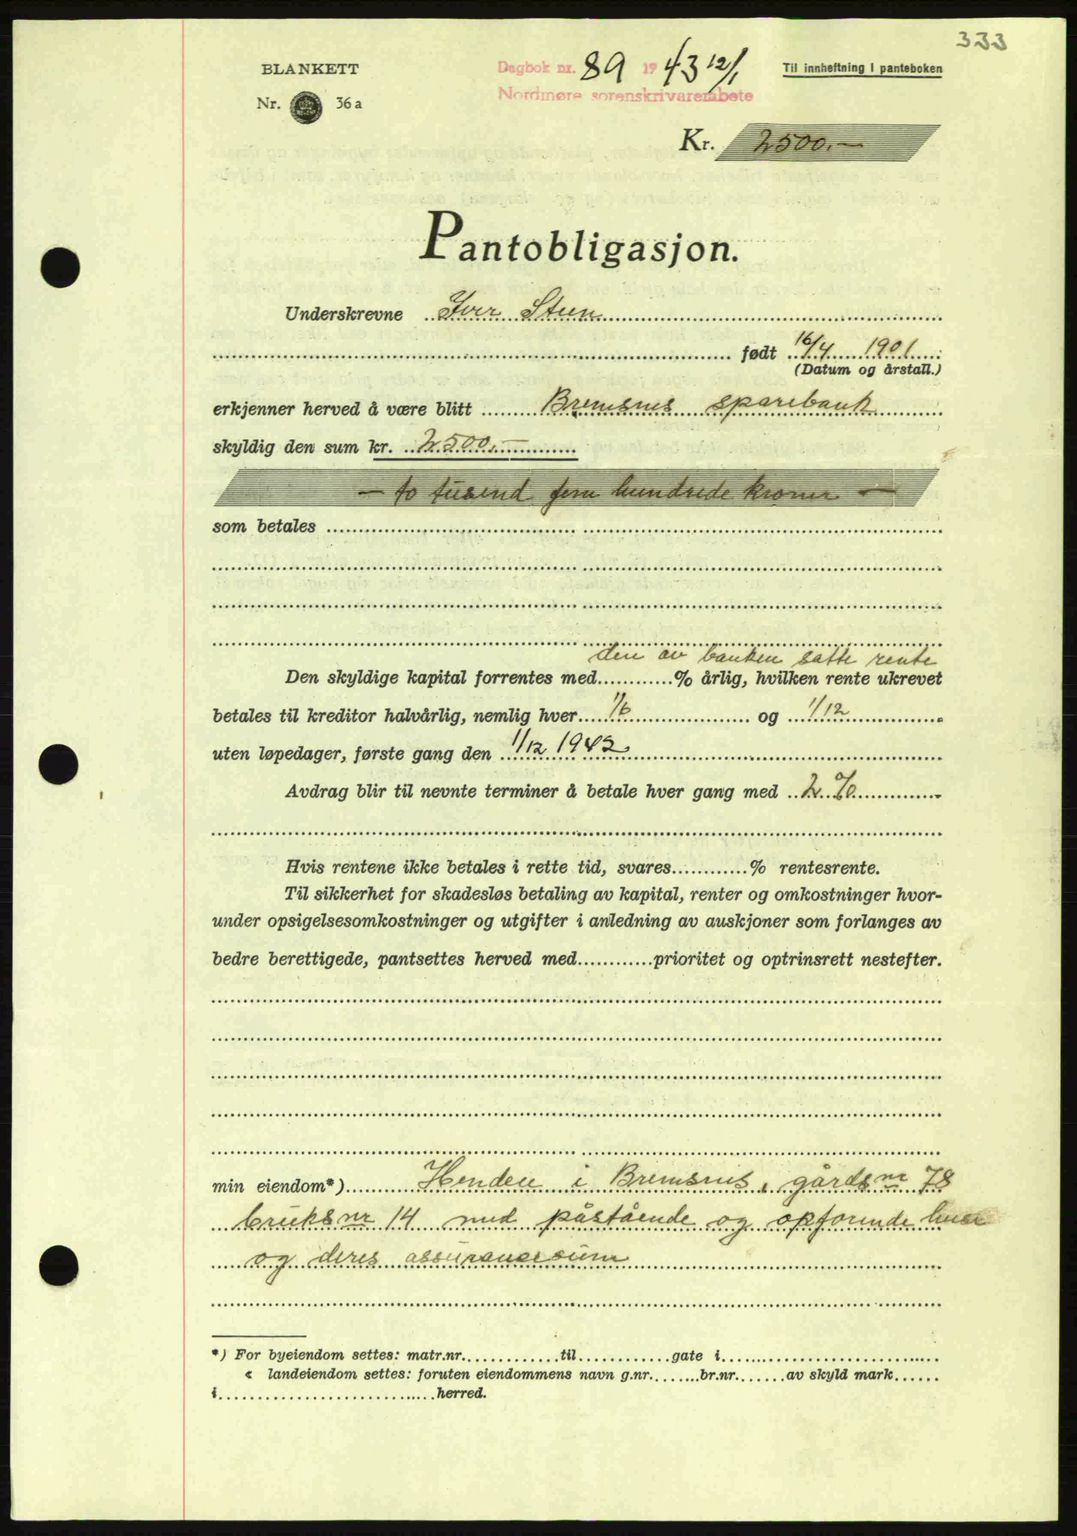 333
BLANKETT
Nr. 36 a
Dagbok nr. 89 1943 12/1
Nordmøre sorenskrivarembete
Til innheftning i panteboken
Kr. 2500.-
Pantobligasjon.
Underskrevne Iver Steen
født 16/4 1901
(Datum og årstall.)
erkjenner herved å være blitt Bremsnes sparebank
skyldig den sum kr. 2500.-
- to tusend fem hundrede kroner -
som betales
den av banken satte rente
Den skyldige kapital forrentes med............% årlig, hvilken rente ukrevet
betales til kreditor halvårlig, nemlig hver 1/6 og 1/12
uten løpedager, første gang den 1/12 1942
Avdrag blir til nevnte terminer å betale hver gang med 2 %
Hvis rentene ikke betales i rette tid, svares............% rentesrente.
Til sikkerhet for skadesløs betaling av kapital, renter og omkostninger hvor-
under opsigelsesomkostninger og utgifter i anledning av auskjoner som forlanges av
bedre berettigede, pantsettes herved med............prioritet og optrinsrett nestefter.
min eiendom*) i Bremsnes, gårdsnr 78
bruksnr 14 med påstående og opførende huse
og deres assuransesum
*) For byeiendom settes: matr.nr..............til.............gate i...............................
« landeiendom settes: foruten eiendommens navn g.nr........br.nr.......av skyld mark......
i...............................herred.